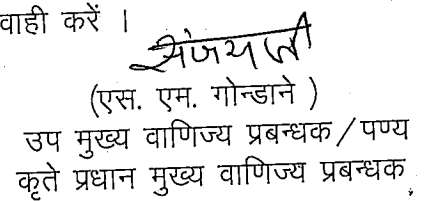 वाही करें ।
संजय जी
(एस. एम. गोन्डाने )
उप मुख्य वाणिज्य प्रबन्धक/पण्य
कृते प्रधान मुख्य वाणिज्य प्रबन्धक